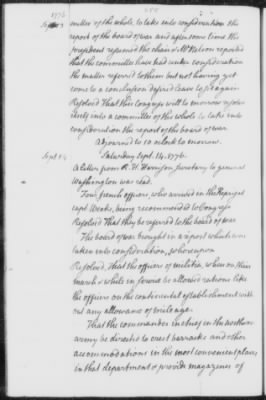 1776
Sept 13
matter of the whole to take into consideration the
report of the board of war and after some time the
president resumed the chair & Mr Nelson reported
that the committee have had under consideration
the matter referred to them but not having yet
come to a conclusion desired leave to sit again
Resolved That this Congress will to morrow resolve
itself into a committee of the whole to take into
consideration the report of the board of war.
Adjourned to 10 oClock to morrow.
Sept 14
Saturday Sept. 14. 1776.
A letter from R. H. Harrison secretary to general
Washington was read.
Four french officers who arrived in the Reprisal
capt Weeks, being recommended to Congress
Resolved That they be referred to the board of war
The board of war brought in a report which was
taken into consideration, whereupon
Resolved, That the officers of militia, when on their
march & while in service be allowed rations like
the officers on the continental establishment with
out any allowance of mileage.
That the commander in chief in the northern
army be directed to erect barracks and other
accommodations in the most convenient places
in that department & provide magazines of